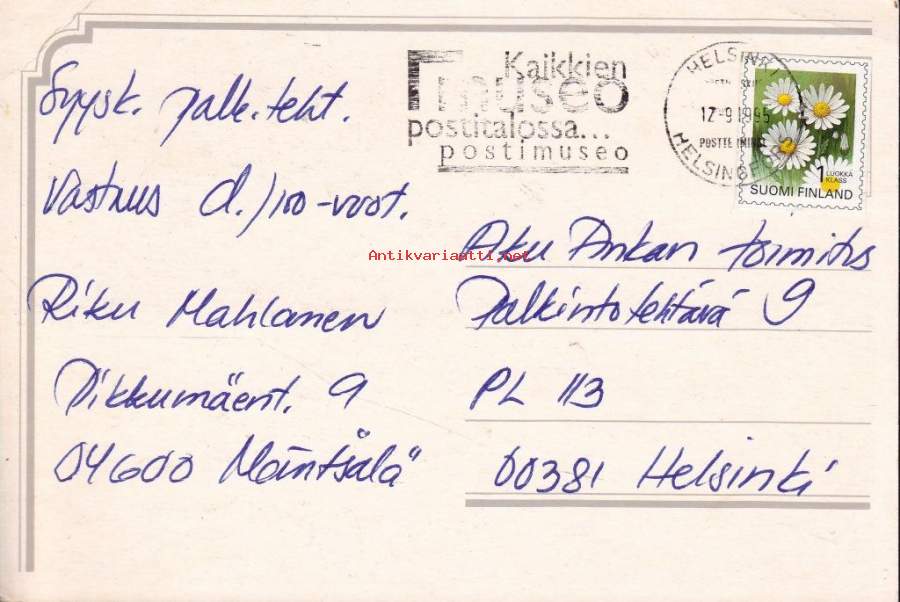 Syysk. palk. teht.
Vastaus d./100-vuot.
Riku Mahlanen
Pikkumäent. 9
04600 Mäntsälä
Kaikkien
museo
postitalossa...
postimuseo
HELSINKI
17-9 1995
HELSINGFORS
1 LUOKKA
KLASS
SUOMI FINLAND
Antikvariaatti.net
Aku Ankan toimitus
Palkintotehtävä 9
PL 113
00381 Helsinki